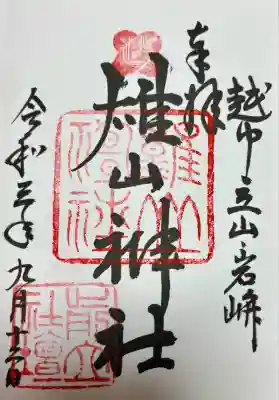 越中立山岩峅
奉拝
雄山神社
雄山
神社
令和三年九月十
前立
社壇